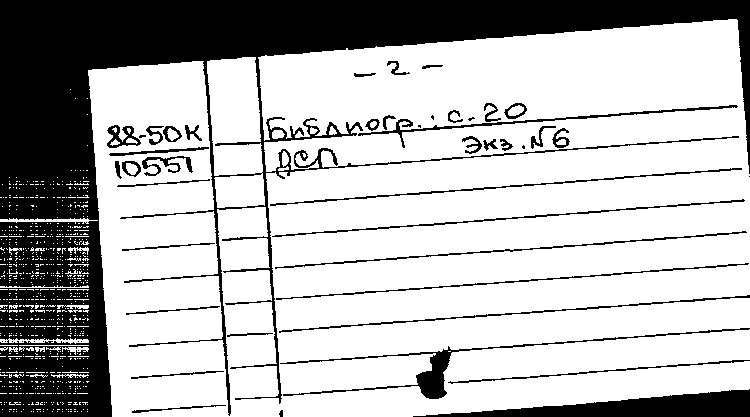 - 2 -
88-50К
10551
Библиогр.: с. 20
Экз. N 6
ДСП.